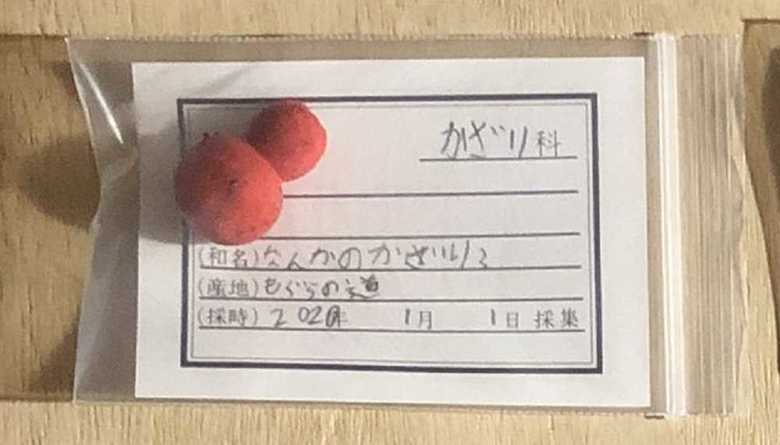 かざり科
(和名)なんかのかざり
(産地)もぐらの道
(採時) 202 年 1月 1日 採集